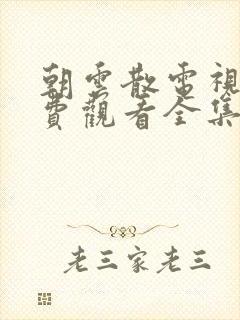 朝雲散電視
費觀看全集
老三家老三